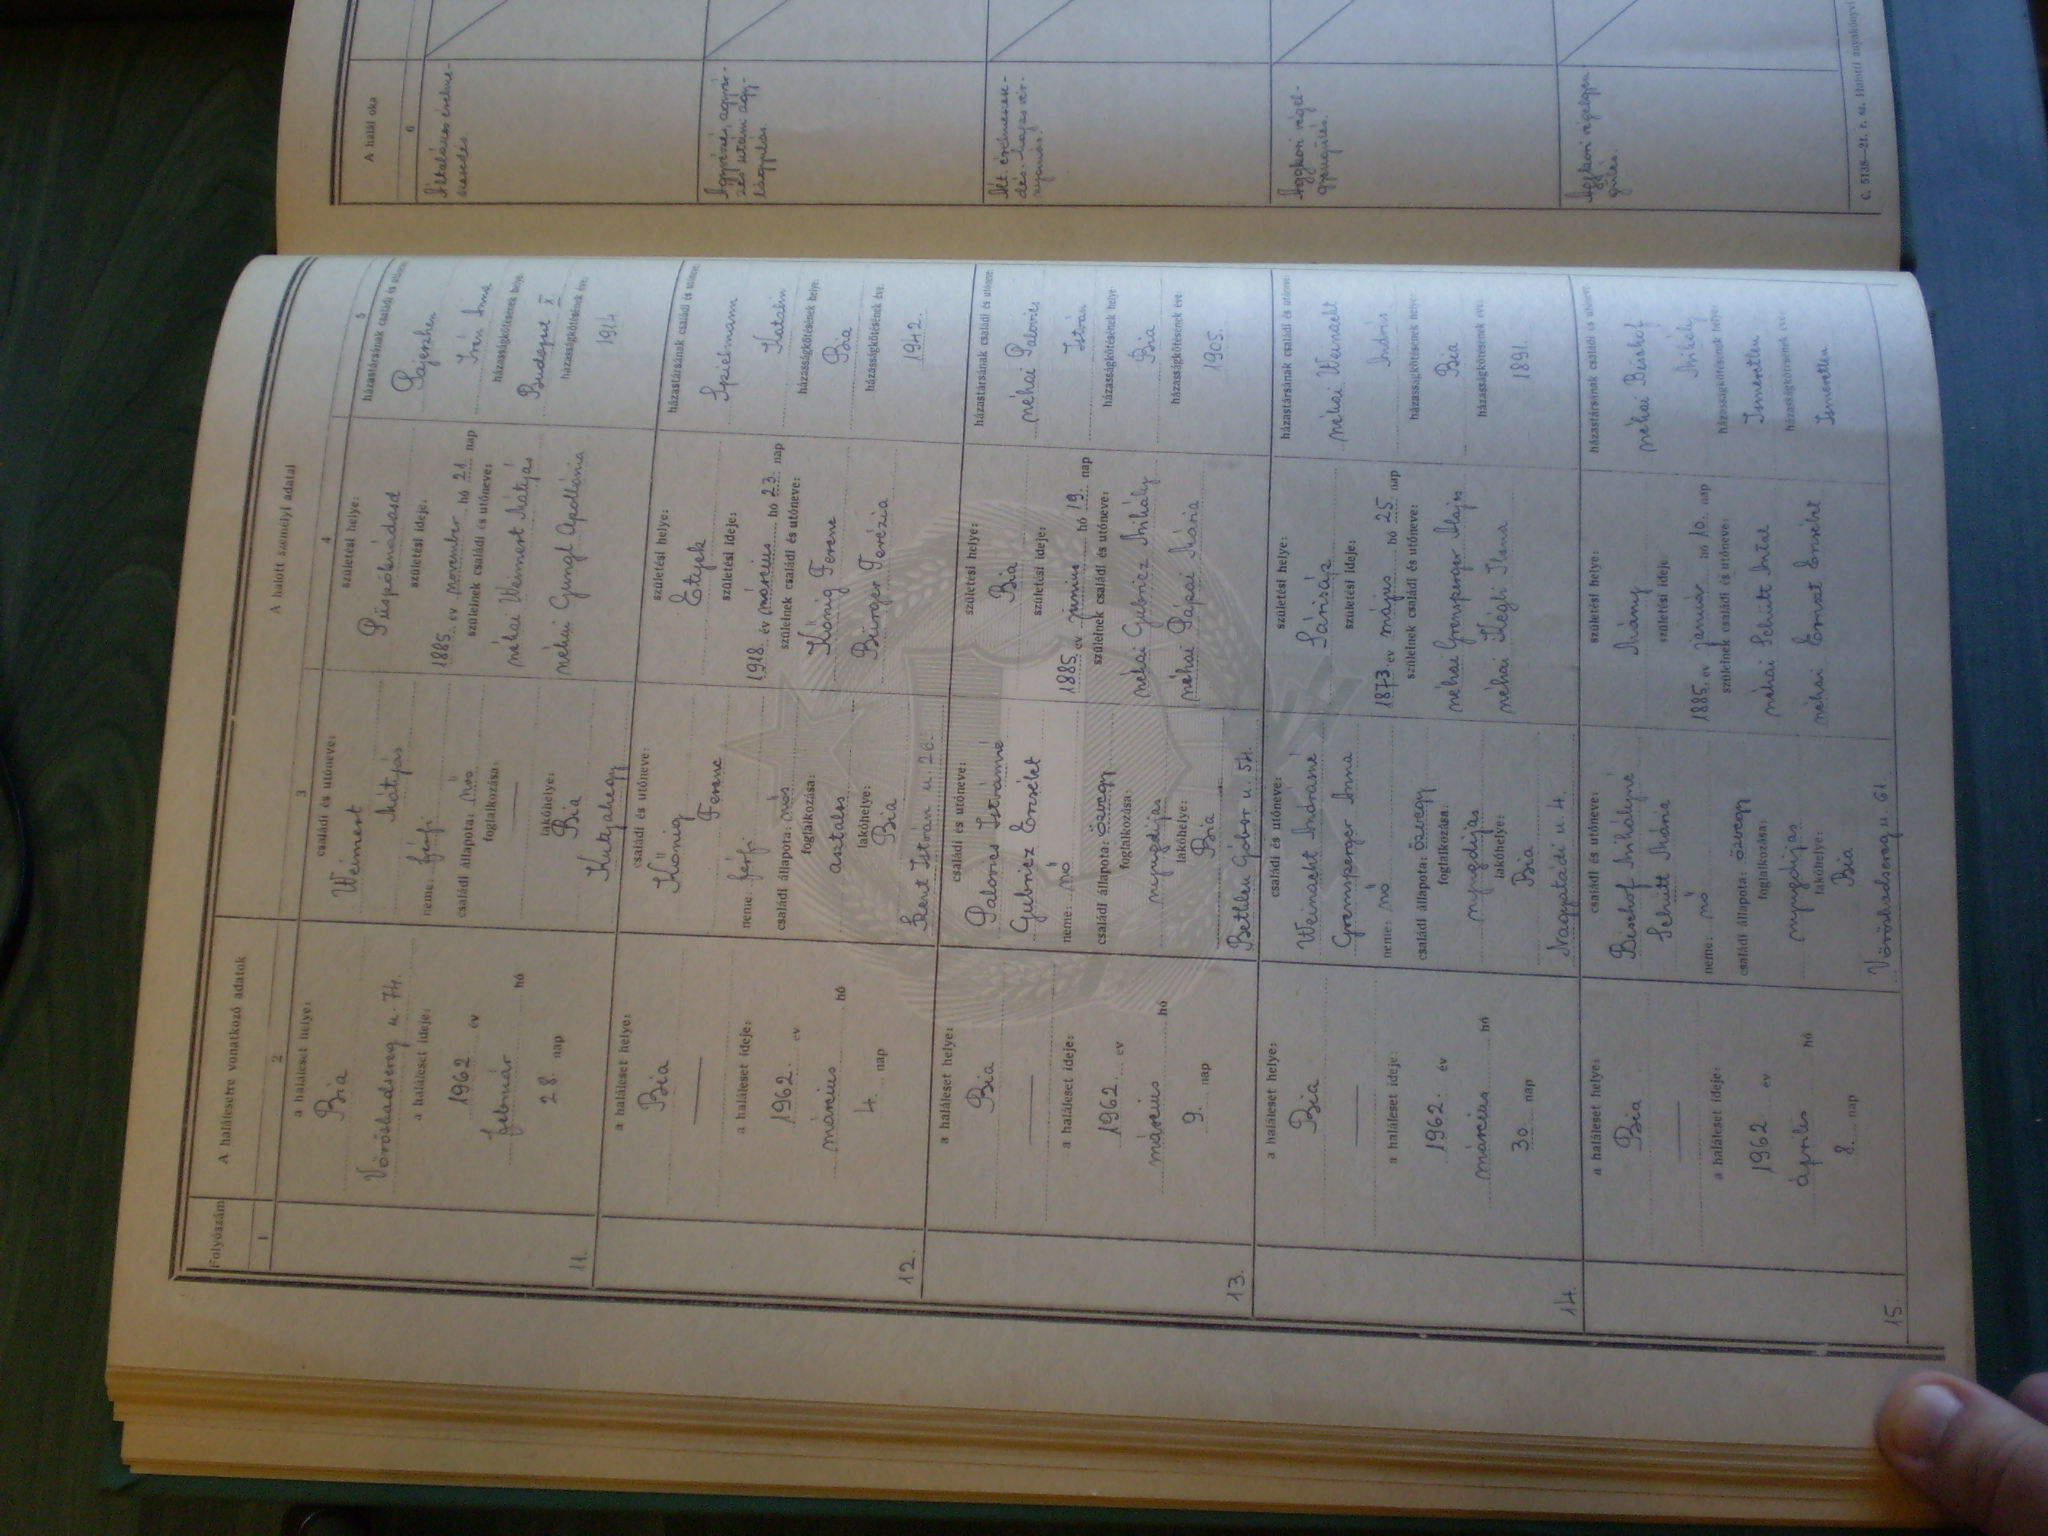 Folyószám
A halálesetre vonatkozó adatok
A halott személyi adatai
A halál oka
1
2
3
4
5
6
11.
a haláleset helye:
Bia
Vöröshadsereg u. 74.
a haláleset ideje:
1962 év
február hó
28. nap
családi és utóneve:
Weimert
Mátyás
neme: férfi
családi állapota: nős
foglalkozása:
—
lakóhelye:
Bia
Kutyahegy
születési helye:
Püspöknádasd
születési ideje:
1885. év november hó 21. nap
szüleinek családi és utóneve:
néhai Weimert Mátyás
néhai Gungl Apollónia
házastársának családi és utóneve:
Irén Anna
házasságkötésének helye:
Budapest X.
házasságkötésének éve:
1914
Általános érelme-
szesedés.
12.
a haláleset helye:
Bia
—
a haláleset ideje:
1962. év
március hó
4. nap
családi és utóneve:
König
Ferenc
neme: férfi
családi állapota: nős
foglalkozása:
asztalos
lakóhelye:
Bia
Szent István u. 26.
születési helye:
Etyek
születési ideje:
1918. év március hó 23. nap
szüleinek családi és utóneve:
König Ferenc
Bürger Terézia
házastársának családi és utóneve:
Spielmann
Katalin
házasságkötésének helye:
Bia
házasságkötésének éve:
1942.
zés után agy-
lágyulás.
13.
a haláleset helye:
Bia
—
a haláleset ideje:
1962. év
március hó
9. nap
családi és utóneve:
Palovics Istvánné
Gubricz Erzsébet
neme: nő
családi állapota: özvegy
foglalkozása:
nyugdíjas
lakóhelye:
Bia
Bethlen Gábor u. 54.
születési helye:
Bia
születési ideje:
1885. év június hó 19. nap
szüleinek családi és utóneve:
néhai Gubricz Mihály
néhai Pápai Mária
házastársának családi és utóneve:
néhai Palovics
István
házasságkötésének helye:
Bia
házasságkötésének éve:
1905.
Ált. érelmesese-
dés. magas vér-
nyomás.
14.
a haláleset helye:
Bia
—
a haláleset ideje:
1962. év
március hó
30. nap
családi és utóneve:
Weinacht Andrásné
Gremsperger Anna
neme: nő
családi állapota: özvegy
foglalkozása:
nyugdíjas
lakóhelye:
Bia
Nagyatádi u. 4.
születési helye:
Sárisáp
születési ideje:
1873. év május hó 25 nap
szüleinek családi és utóneve:
néhai Gremsperger Alajos
néhai Kégli Ilona
házastársának családi és utóneve:
néhai Weinacht
András
házasságkötésének helye:
Bia
házasságkötésének éve:
1891.
Aggkori végel-
gyengülés.
15.
a haláleset helye:
Bia
—
a haláleset ideje:
1962 év
április hó
8. nap
családi és utóneve:
Bischof Mihályné
Schütt Mária
neme: nő
családi állapota: özvegy
foglalkozása:
nyugdíjas
lakóhelye:
Bia
Vöröshadsereg u. 61
születési helye:
Mány
születési ideje:
1885. év január hó 10. nap
szüleinek családi és utóneve:
néhai Schütt Antal
néhai Ernszt Erzsébet
házastársának családi és utóneve:
néhai Bischof
Mihály
házasságkötésének helye:
Ismeretlen
házasságkötésének éve:
Ismeretlen
Aggkori végelgyen-
gülés.
C. 5138—21. r. sz. Halotti anyakönyvi